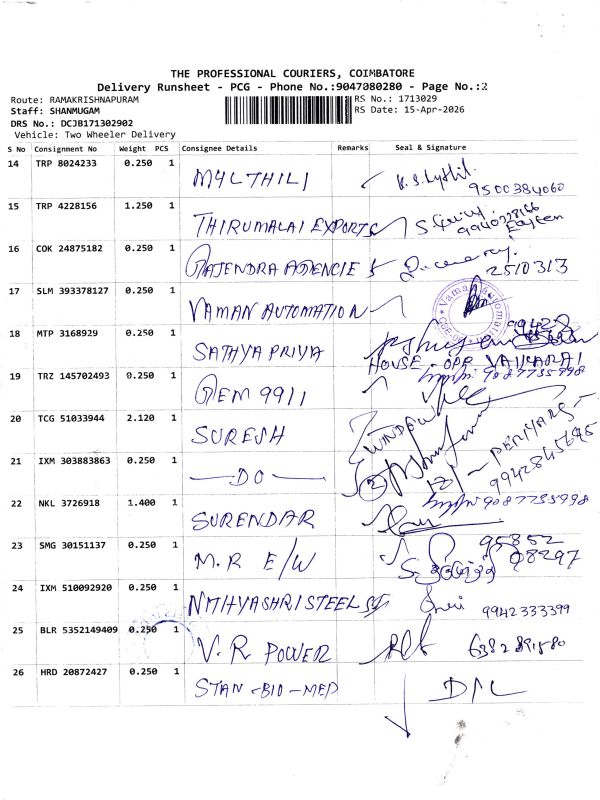 THE PROFESSIONAL COURIERS, COIMBATORE
Delivery Runsheet - PCG - Phone No.:9047080280 - Page No.:2
Route: RAMAKRISHNAPURAM
Staff: SHANMUGAM
DRS No.: DCJB171302902
Vehicle: Two Wheeler Delivery
RS No.: 1713029
RS Date: 15-Apr-2026
S No Consignment No Weight PCS Consignee Details Remarks Seal & Signature
14 TRP 8024233 0.250 1 MYLTHILI 9500384060
15 TRP 4228156 1.250 1 THIRUMALAI EXPORTS 9940228166
16 COK 24875182 0.250 1 RAJENDRA AGENCIES 2510313
17 SLM 393378127 0.250 1 VAMAN AUTOMATION
18 MTP 3168929 0.250 1 SATHYA PRIYA
HOUSE - OPP
19 TRZ 145702493 0.250 1 GEM 9911 9087735998
20 TCG 51033944 2.120 1 SURESH WINDOW
21 IXM 303883863 0.250 1 — DO — 9942845695
22 NKL 3726918 1.400 1 SURENDAR 9087735998
23 SMG 30151137 0.250 1 M.R E/W 95852 08297
24 IXM 510092920 0.250 1 NITHYASHRI STEELS 9942333399
25 BLR 5352149409 0.250 1 V.R. POWER
26 HRD 20872427 0.250 1 STAN-BIO-MED